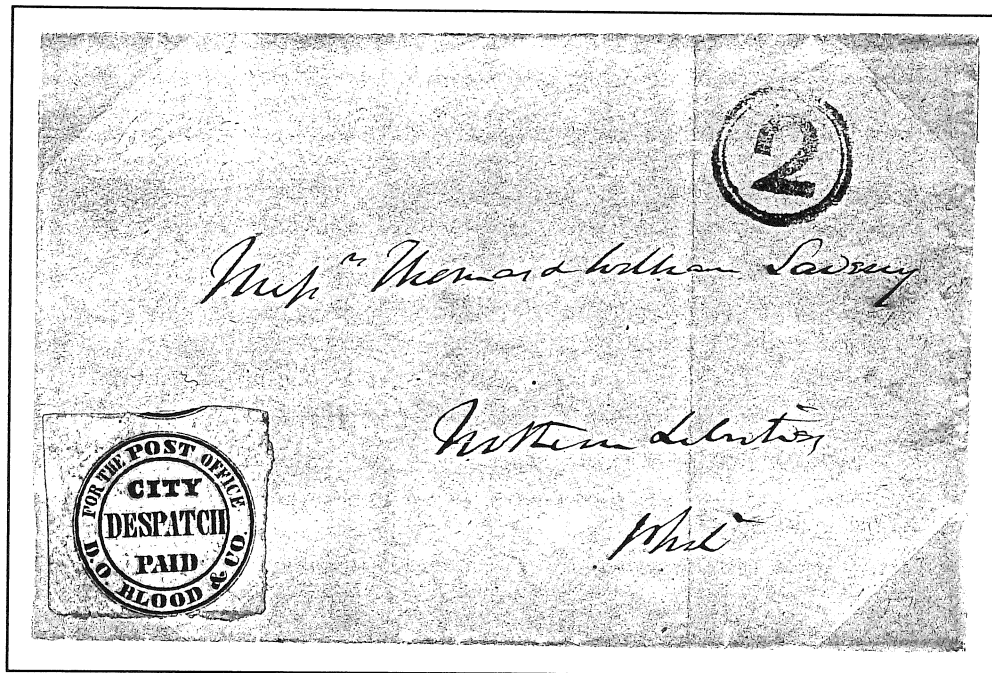 2
Messrs Thomas & William Savery
Northern Liberties
Phila
FOR THE POST OFFICE
CITY
DESPATCH
PAID
D.O. BLOOD & CO.